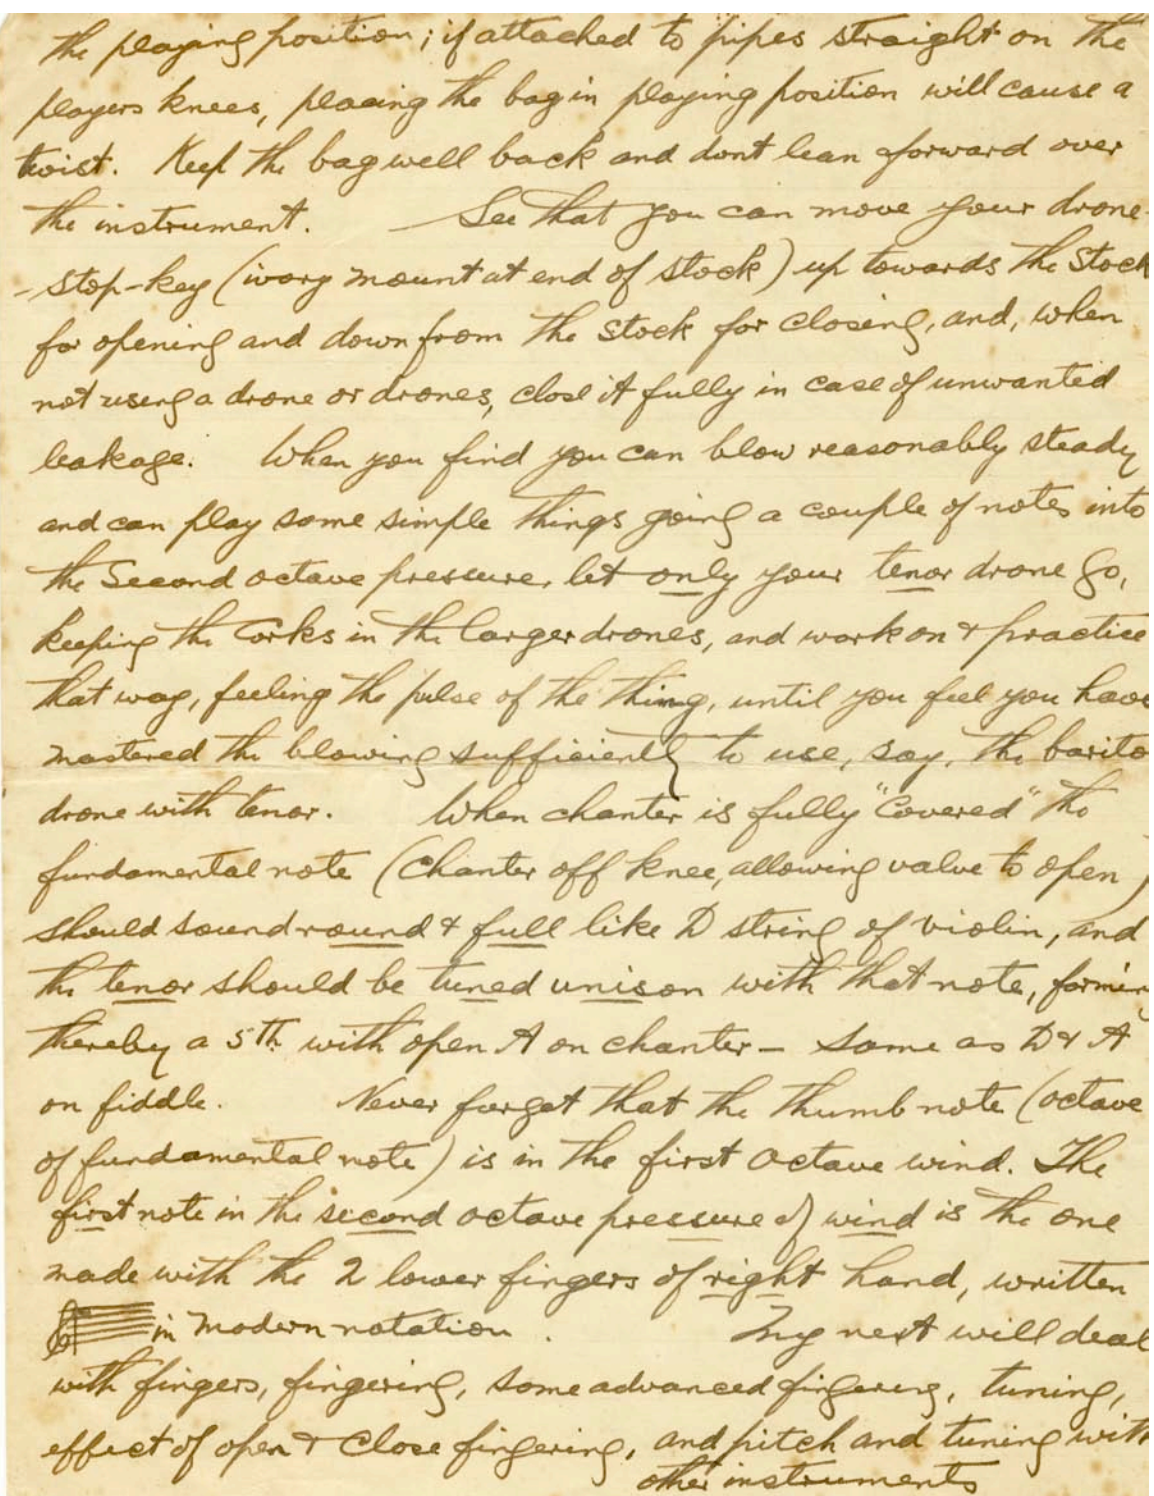 the playing position; if attached to pipes straight on the
players knees, placing the bag in playing position will cause a
twist. Keep the bag well back and dont lean forward over
the instrument. See that you can move your drone-
-stop-key (ivory mount at end of stock) up towards the stock
for opening and down from the stock for closing, and, when
not using a drone or drones, close it fully in case of unwanted
leakage. When you find you can blow reasonably steady
and can play some simple things going a couple of notes into
the second octave pressure, let only your tenor drone go,
keeping the corks in the larger drones, and work on & practice
that way, feeling the pulse of the thing, until you feel you have
mastered the blowing sufficiently to use, say, the barito
drone with tenor. When chanter is fully "covered" the
fundamental note (chanter off knee, allowing valve to open)
should sound round & full like D string of violin, and
the tenor should be tuned unison with that note, formin
thereby a 5th with open A on chanter - same as D & A
on fiddle. Never forget that the thumb note (octave
of fundamental note) is in the first octave wind. The
first note in the second octave pressure of wind is the one
made with the 2 lower fingers of right hand, written
in modern notation. My next will deal
with fingers, fingering, some advanced fingering, tuning,
effect of open & close fingering, and pitch and tuning with
other instruments